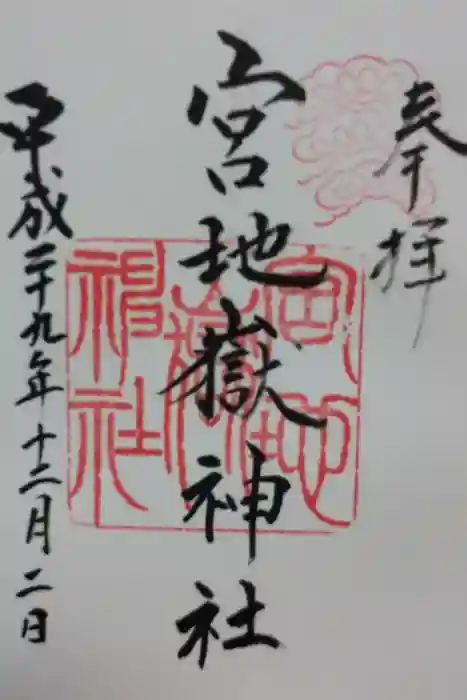 奉拝
宮地嶽神社
宮地嶽神社
平成二十九年十二月二日